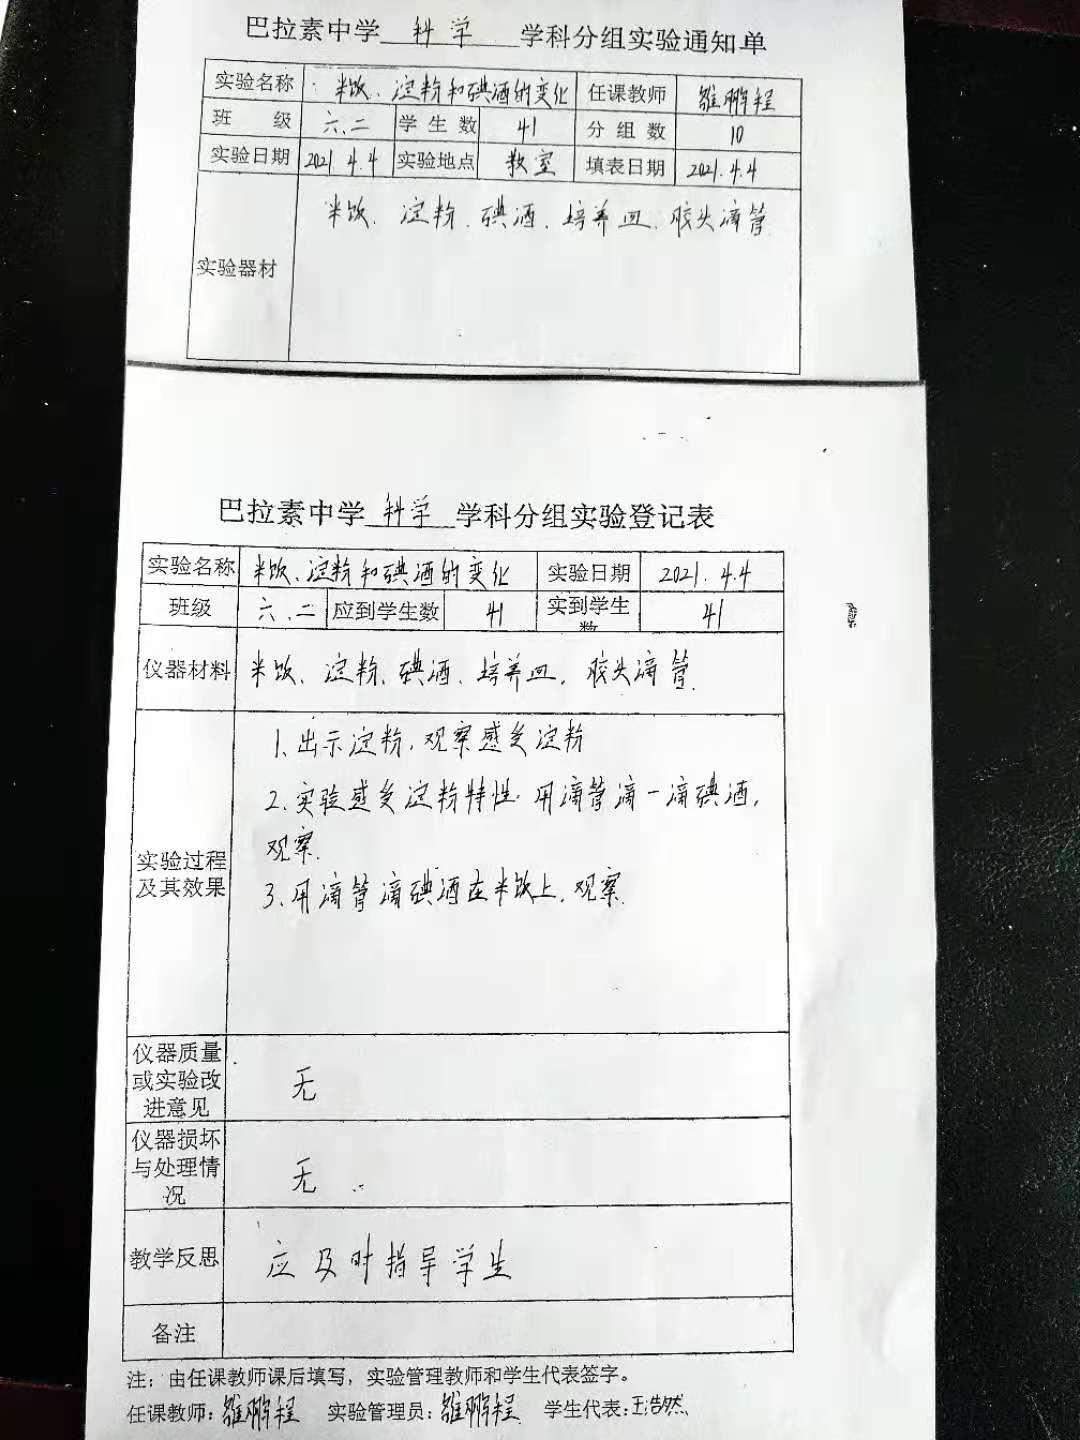 巴拉素中学 科学 学科分组实验通知单
实验名称 米饭、淀粉和碘酒的变化 任课教师 雒鹏程
班 级 六、二 学生数 41 分组数 10
实验日期 2021.4.4 实验地点 教室 填表日期 2021.4.4
实验器材 米饭、淀粉、碘酒、培养皿、胶头滴管
巴拉素中学 科学 学科分组实验登记表
实验名称 米饭、淀粉和碘酒的变化 实验日期 2021.4.4
班级 六、二 应到学生数 41 实到学生数 41
仪器材料 米饭、淀粉、碘酒、培养皿、胶头滴管
实验过程及其效果
1、出示淀粉,观察感受淀粉
2、实验感受淀粉特性.用滴管滴一滴碘酒,
观察.
3、用滴管滴碘酒在米饭上,观察.
仪器质量
或实验改
进意见
无
仪器损坏
与处理情
况
无
教学反思 应及时指导学生
备注
注:由任课教师课后填写,实验管理教师和学生代表签字。
任课教师:雒鹏程 实验管理员:雒鹏程 学生代表:王浩然